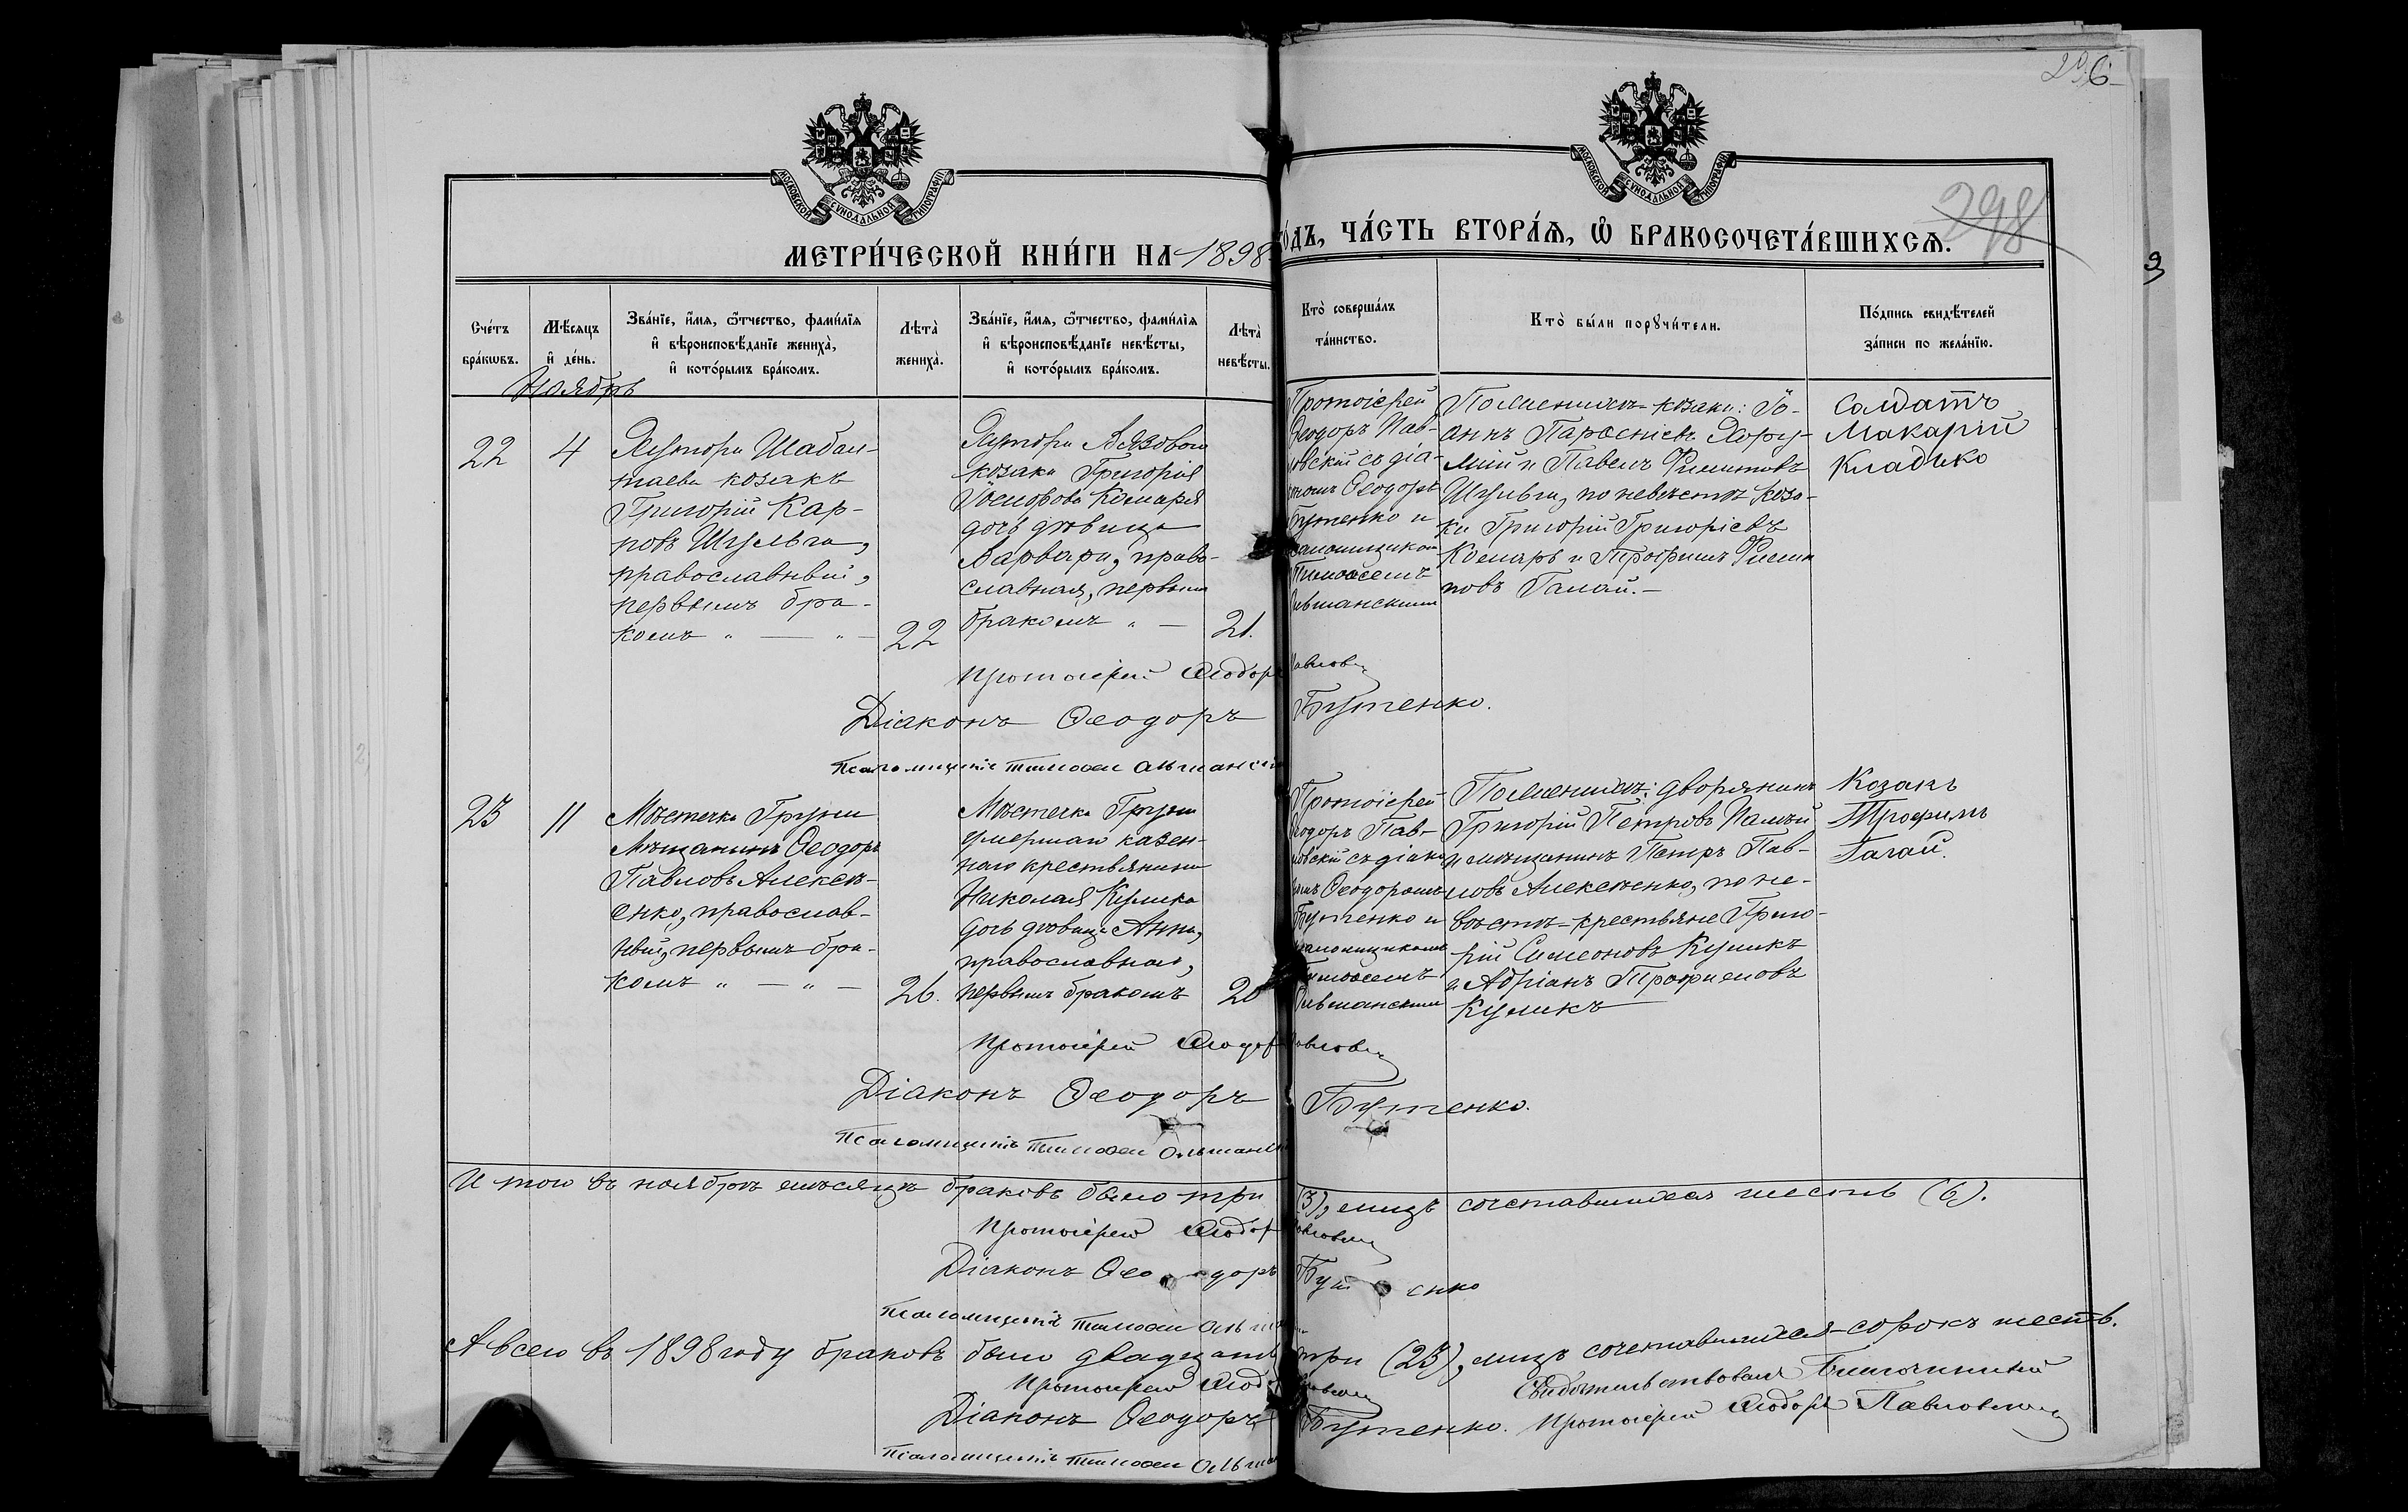 296
298
МОСКОВСКОЙ СУНОДАЛЬНОЙ ТИПОГРАФІИ
МОСКОВСКОЙ СУНОДАЛЬНОЙ ТИПОГРАФІИ
МЕТРИ́ЧЕСКОЙ КНИ́ГИ НА 1898
ГО́ДЪ, ЧА́СТЬ ВТОРА́Ѧ, Ѽ БРАКОСОЧЕТА́ВШИХСѦ.
Сче́тъ бра́кωвъ.
Мѣ́сѧцъ и҆ де́нь.
Зва́нїе, и҆́мѧ, ѻ҆́тчество, фами́лїѧ и҆ вѣроисповѣ́данїе жениха̀, и҆ кото́рымъ бра́комъ.
Лѣта̀ жениха̀.
Зва́нїе, и҆́мѧ, ѻ҆́тчество, фами́лїѧ и҆ вѣроисповѣ́данїе невѣ́сты, и҆ кото́рымъ бра́комъ.
Лѣта̀ невѣ́сты.
Кто̀ соверша́лъ та́инство.
Кто̀ бы́ли порꙋчи́тели.
По́дпись свидѣ́телей за́писи по жела́нїю.
Ноябрь
22
4
Хутора Шабал-
таева козакъ
Григорій Кар-
повъ Шульга,
православный,
первымъ бра-
комъ " — " —
22
Хутора Вязоваго
козака Григорія
Комаря
дочь дѣвица
Варвара, право-
славная, первым
бракомъ " —
21.
Протоіерей
Ѳеодоръ Пав-
ловскій съ діа-
кономъ Ѳеодоръ
Бутенко и
псаломщиком
Тимоѳеемъ
Ольшанскимъ
По женихѣ козаки: Іо-
аннъ Парѳеніевъ
и Павелъ Филиповъ
Шульга, по невѣстѣ коза-
ки Григорій Григоріевъ
Комаръ и Трофимъ Фили
повъ Галай. —
Солдатъ
Макарій
Кладько
Протоіерей Ѳеодоръ Павловскій
Діаконъ Ѳеодоръ Бутенко.
Псаломщикъ Тимоѳей Ольшанскій
23
11
Мѣстечка Груни
Мѣщанинъ Ѳеодоръ
Павловъ Алексѣ-
енко, православ-
ный, первымъ бра-
комъ " — " —
26.
Мѣстечка Груни
умершаго казен-
наго крестьянина
Николая Кулика
дочь дѣвица Анна,
православная,
первымъ бракомъ
20
Протоіерей
Ѳеодоръ Пав-
ловскій съ діако
номъ Ѳеодоромъ
Бутенко и
псаломщикомъ
Тимоѳеемъ
Ольшанскимъ
По женихѣ: дворянинъ
Григорій Петровъ
и мѣщанинъ Петръ Пав-
ловъ Алексѣенко, по не-
вѣстѣ — крестьяне Григо-
рій Симеоновъ Куликъ
и Адріанъ Трофимовъ
Куликъ
Козакъ
Трофимъ
Галай.
Протоіерей Ѳеодоръ Павловскій
Діаконъ Ѳеодоръ Бутенко.
Псаломщикъ Тимоѳей Ольшанскій
Итого въ ноябрѣ мѣсяцѣ браковъ было три (3), лицъ сочетавшихся шесть (6).
Протоіерей Ѳеодоръ Павловскій
Діаконъ Ѳеодоръ Бутенко
Псаломщикъ Тимоѳей Ольшан
А всего въ 1898 году браковъ было двадцать три (23), лицъ сочетавшихся — сорокъ шесть.
Протоіерей Ѳеодоръ Павловскій
Діаконъ Ѳеодоръ Бутенко.
Псаломщикъ Тимоѳей Ольшан
Свидѣтельствовалъ Благочинный
Протоіерей Ѳеодоръ Павловскій